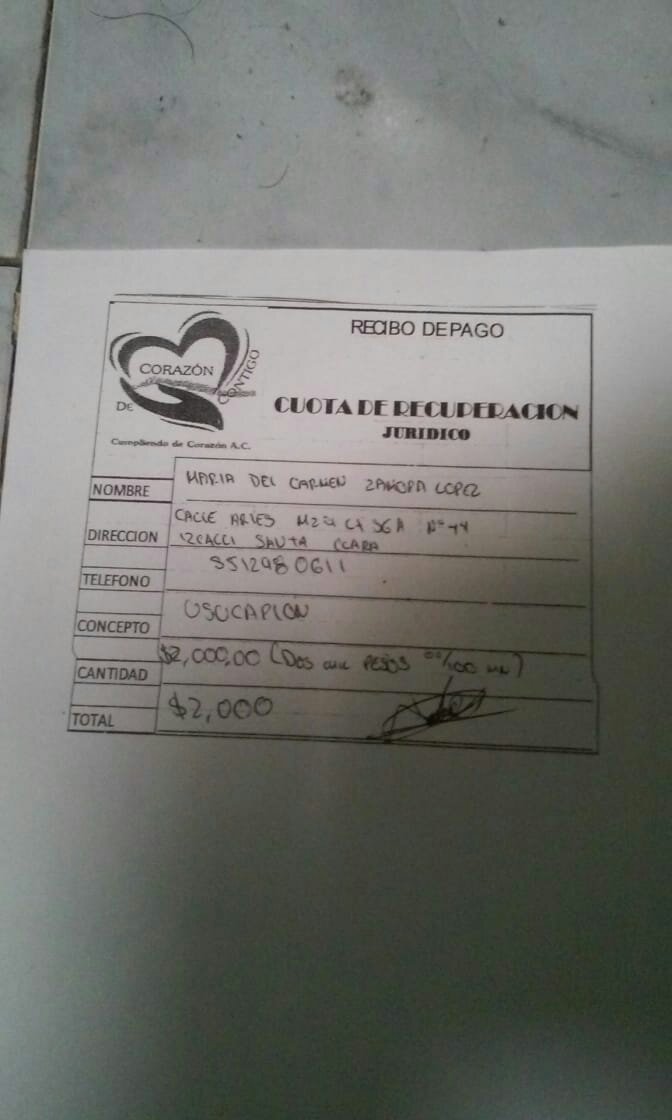 RECIBO DE PAGO
CORAZÓN
CONTIGO
DE
Cumpliendo de Corazón A.C.
CUOTA DE RECUPERACION
JURIDICO
NOMBRE MARIA DEL CARMEN ZAMORA LOPEZ
DIRECCION CALLE ARIES Nº 44
IZCALLI SANTA CLARA
TELEFONO 5512980611
CONCEPTO USUCAPION
CANTIDAD $2,000.00 (DOS MIL PESOS 00/100 MN)
TOTAL $2,000